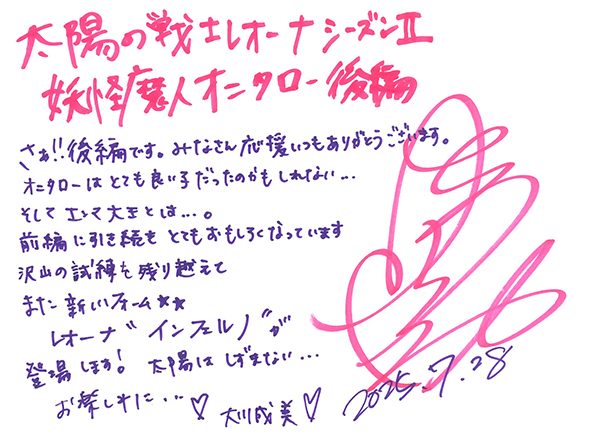 太陽の戦士レオーナシーズンⅡ
妖怪魔人オニタロー後編
さぁ!!後編です。みなさん応援いつもありがとうございます。
オニタローはとても良い子だったのかもしれない...
そしてエンマ大王とは...。
前編に引き続き とてもおもしろくなっています
沢山の試練を残り越えて
また新しいフォーム★★
レオーナ"インフェルノ"が
登場します! 太陽はしずまない...
お楽しみに... ♡ 大川成美 ♡
2025.7.28